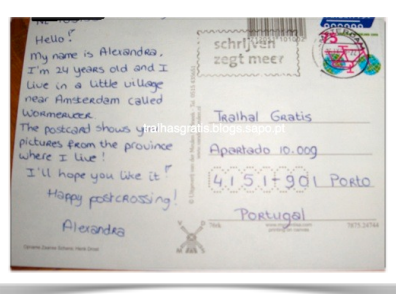 Hello!
My name is Alexandra,
I'm 24 years old and I
live in a little village
near Amsterdam called
Wormerveer.
The postcard shows you
pictures from the province
where I live!
I'll hope you like it!
Happy postcrossing!
Alexandra
schrijven
zegt meer
tralhasgratis.blogs.sapo.pt
Tralhal Gratis
Apartado 10.009
4151-901 Porto
Portugal